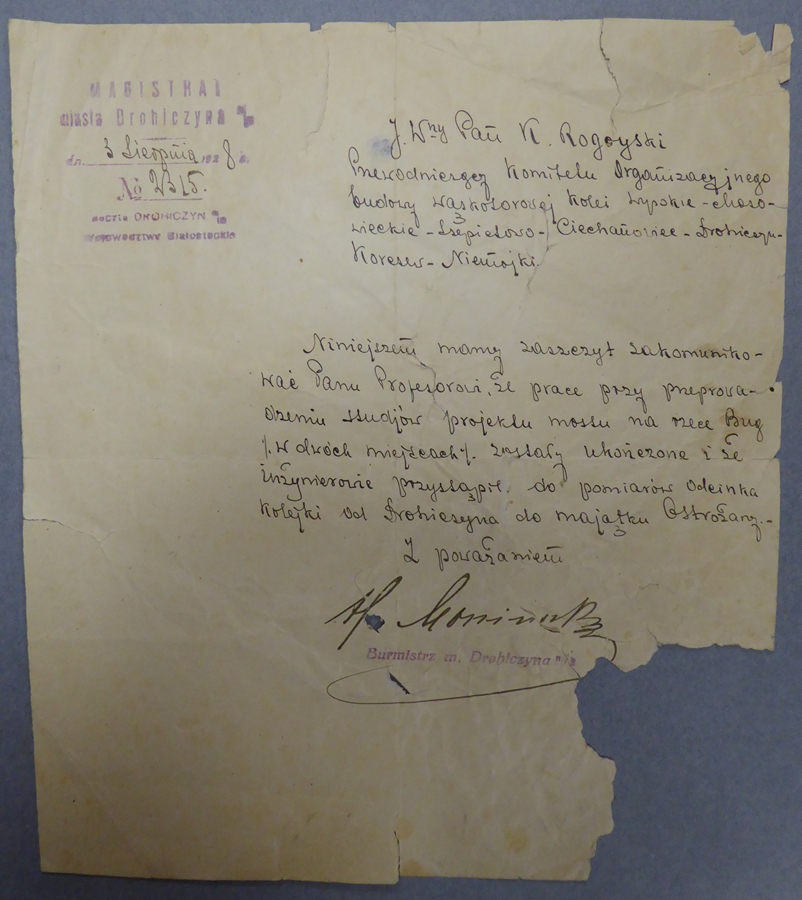 MAGISTRAT
miasta Drohiczyna n/B
dn. 3 Sierpnia 1928 r.
№ 2315.
poczta DROHICZYN n/B
Województwo Białostockie
J. Wny Pan K. Rogoyski
Przewodniczący Komitetu Organizacyjnego
budowy wąskotorowej kolei Wysokie-Mazo-
wieckie-Szepietowo-Ciechanowiec-Drohiczyn-
Korczew-Niemojki.
Niniejszem mamy zaszczyt zakomuniko-
wać Panu Profesorowi, że prace przy przeprowa-
dzeniu studjów projektu mostu na rzece Bug
/.w dwóch miejscach/. zostały ukończone i że
inżynierowie przystąpili do pomiarów odcinka
kolejki od Drohiczyna do majątku Ostrożany.-
Z poważaniem
Burmistrz m. Drohiczyna n/B